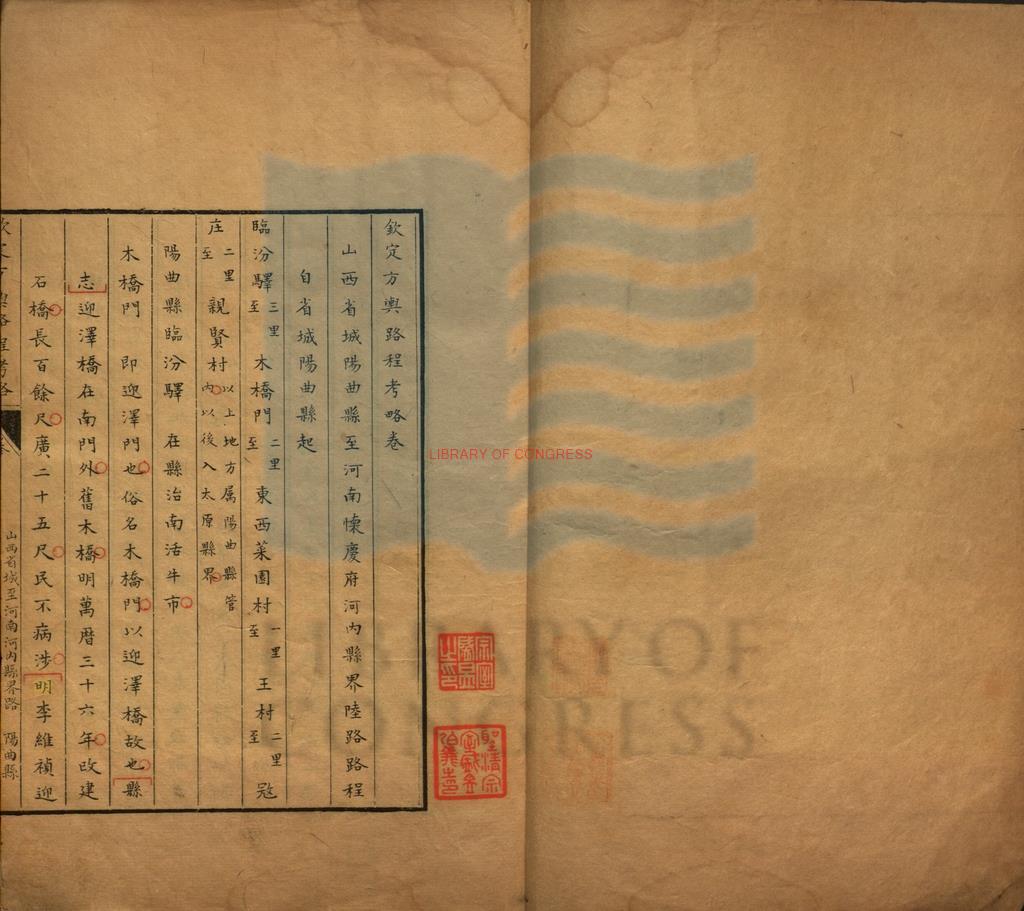 欽定方輿路程考略卷
山西省城陽曲縣至河南懷慶府河內縣界陸路路程
自省城陽曲縣起
臨汾驛三里至木橋門二里至東西菜園村一里至王村二里至寇
庄二里至親賢村以上地方属陽曲縣管內以後入太原縣界
陽曲縣臨汾驛 在縣治南活牛市
木橋門 即迎澤門也俗名木橋門以迎澤橋故也縣
志迎澤橋在南門外舊木橋明萬曆三十六年改建
石橋長百餘尺廣二十五尺民不病涉明李維禎迎
山西省城至河南河內縣界路 陽曲縣
LIBRARY OF CONGRESS
LIBRARY OF CONGRESS